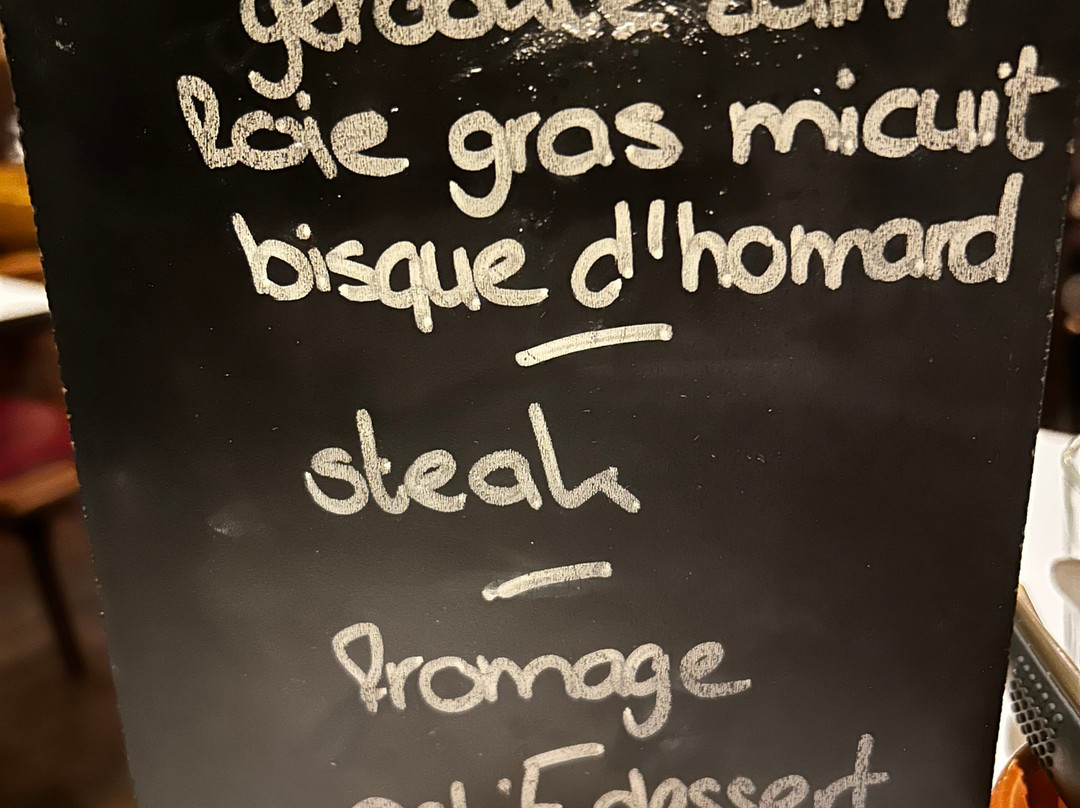 foie gras micuit
bisque d'homard
steak
fromage
dessert